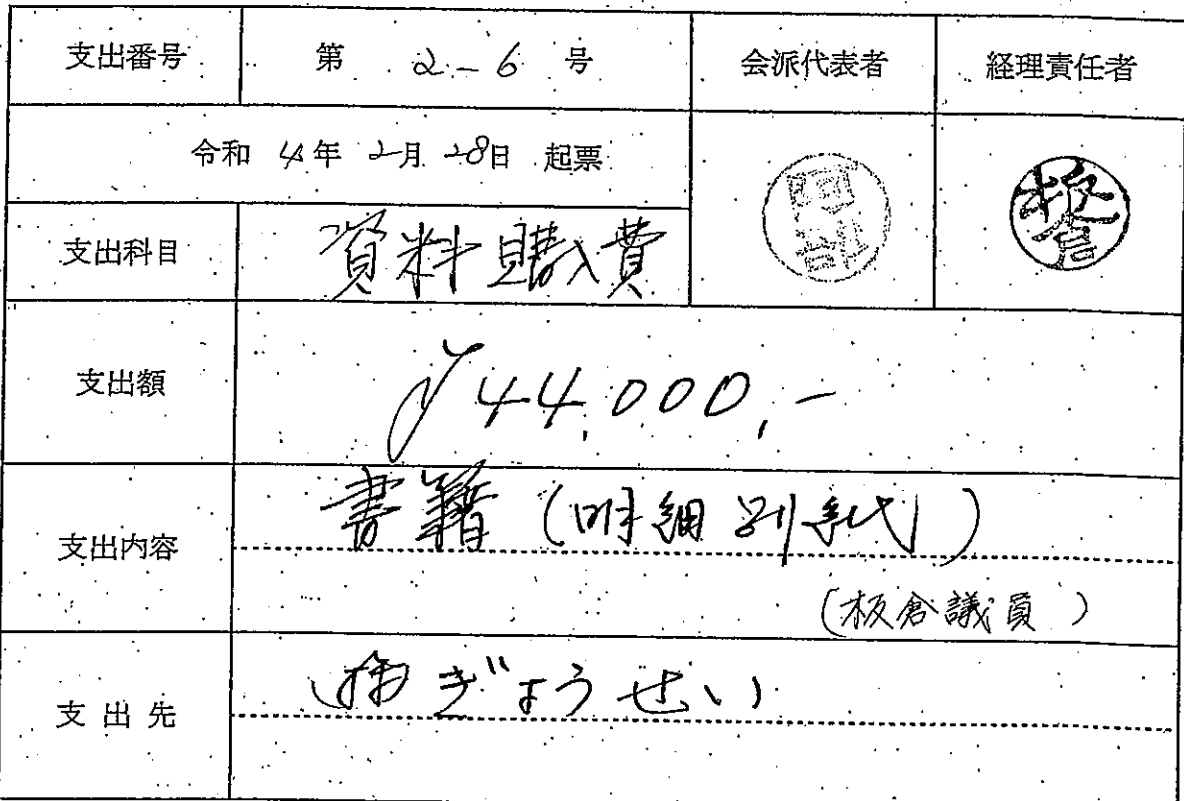 支出番号 第 2-6 号 会派代表者 経理責任者
令和 4年 2月 28日 起票
板倉
支出科目 資料購入費
支出額 ¥44,000,-
支出内容 書籍(明細別紙)
(板倉議員)
支出先 ㈱ぎょうせい